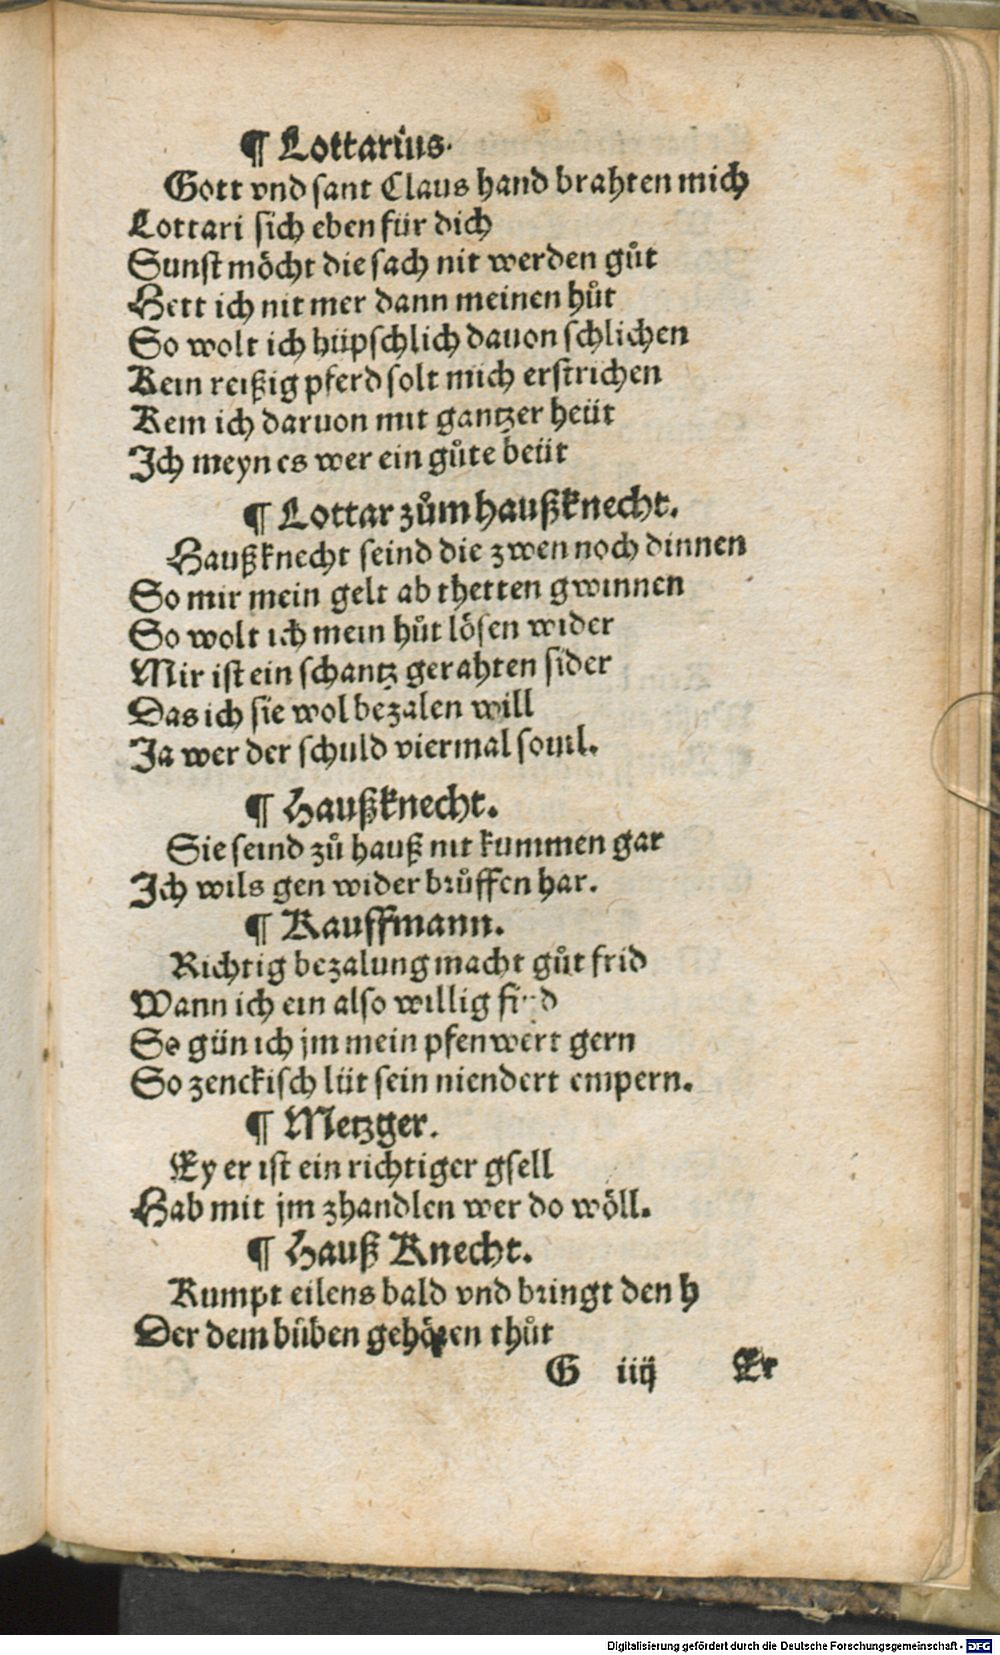 ¶ Lottarius.
Gott vnd sant Claus hand brahten mich
Lottari sich eben für dich
Sunst möcht die sach nit werden gůt
Hett ich nit mer dann meinen hůt
So wolt ich hüpschlich dauon schlichen
Kein reißig pferd solt mich erstrichen
Kem ich daruon mit gantzer heüt
Ich meyn es wer ein gůte beüt
¶ Lottar zům haußknecht.
Haußknecht seind die zwen noch dinnen
So mir mein gelt ab thetten gwinnen
So wolt ich mein hůt lösen wider
Mir ist ein schantz gerahten sider
Das ich sie wol bezalen will
Ja wer der schuld viermal souil.
¶ Haußknecht.
Sie seind zů hauß nit kummen gar
Ich wils gen wider brůffen har.
¶ Kauffmann.
Richtig bezalung macht gůt frid
Wann ich ein also willig find
So gün ich jm mein pfenwert gern
So zenckisch lüt sein niendert empern.
¶ Metzger.
Ey er ist ein richtiger gsell
Hab mit jm zhandlen wer do wöll.
¶ Hauß Knecht.
Kumpt eilens bald vnd bringt den h
Der dem bůben gehören thůt
G iiij Er
Digitalisierung gefördert durch die Deutsche Forschungsgemeinschaft - DFG